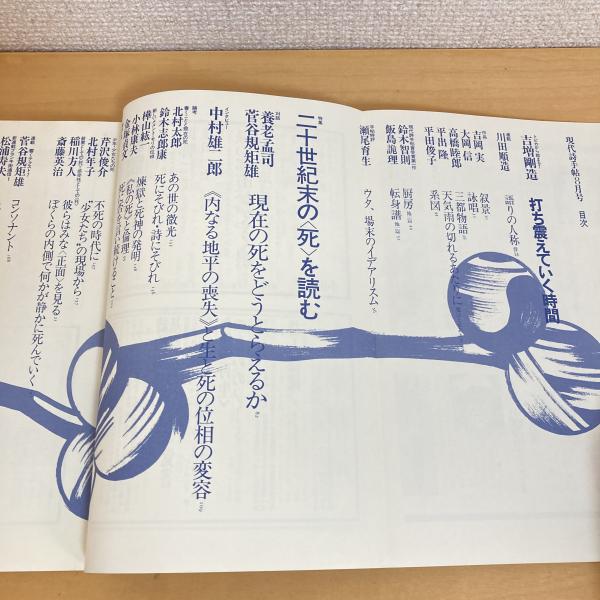 現代詩手帖6月号 目次
吉増剛造 打ち震えていく時間
連載
川田順造 語りの人称
作品
吉岡実 叙景
大岡信 詠唱
高橋睦郎 三都物語
平出隆 天気雨の切れるあたりに
平田俊子 系図
鈴木智則 厨房
飯島詭理 転身譜
瀬尾育生 ウタ、場末のイデアリスム
特集
二十世紀末の〈死〉を読む
対談
養老孟司
菅谷規矩雄 現在の死をどうとらえるか
インタビュー
中村雄二郎 《内なる地平の喪失》と生と死の位相の変容
論考
北村太郎 あの世の微光
鈴木志郎康 死にそびれ、詩にそびれ
樺山紘一 煉獄と死神の発明
小林康夫 《私の死》と倫理
芹沢俊介 不死の時代に
北村年子 “少女たち”の現場から
稲川方人 彼らはみな〈正面〉を見る
斎藤英治 ぼくらの内側で何かが静かに死んでいく
連載
菅谷規矩雄 コンソナント
松浦寿夫